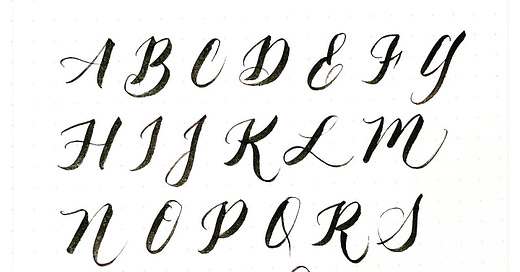 A B C D E F G
H I J K L M
N O P Q R S